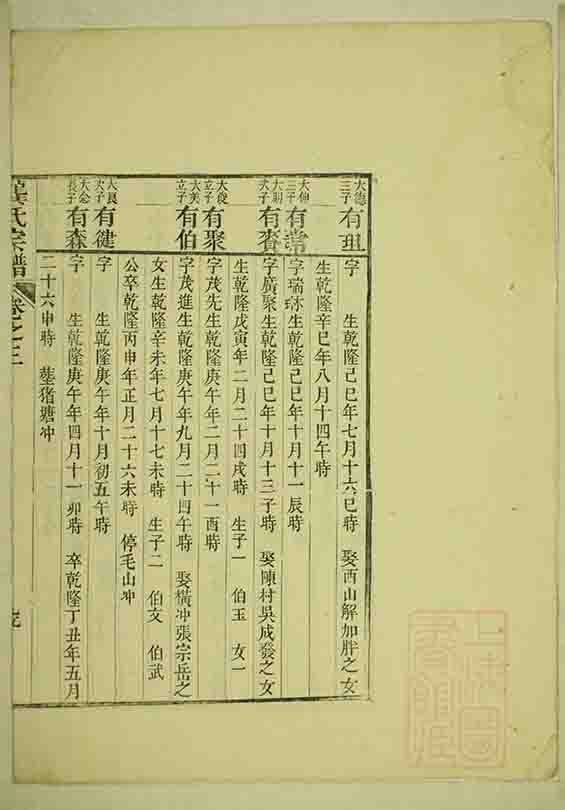 大德三子 有珇 字 生乾隆己巳年七月十六巳時 娶西山解加胖之女
生乾隆辛巳年八月十四午時
大伸三子 有常 字瑞珎生乾隆己巳年十月十一辰時
大朝次子 有賚 字廣聚生乾隆己巳年十月十三子時 娶陳村吳成發之女
生乾隆戊寅年二月二十四戌時 生子一 伯玉 女一
大俊立子 有聚 字茂先生乾隆庚午年二月二十一酉時
大美立子 有伯 字茂進生乾隆庚午年九月二十四午時 娶橫冲張宗岳之
女生乾隆辛未年七月十七未時 生子二 伯文 伯武
公卒乾隆丙申年正月二十六未時 停毛山冲
大良次子 有健 字 生乾隆庚午年十月初五午時
大念長子 有森 字 生乾隆庚午年四月十一卯時 卒乾隆丁丑年五月
二十六申時 塟猪塘冲
龔氏宗譜 卷之三